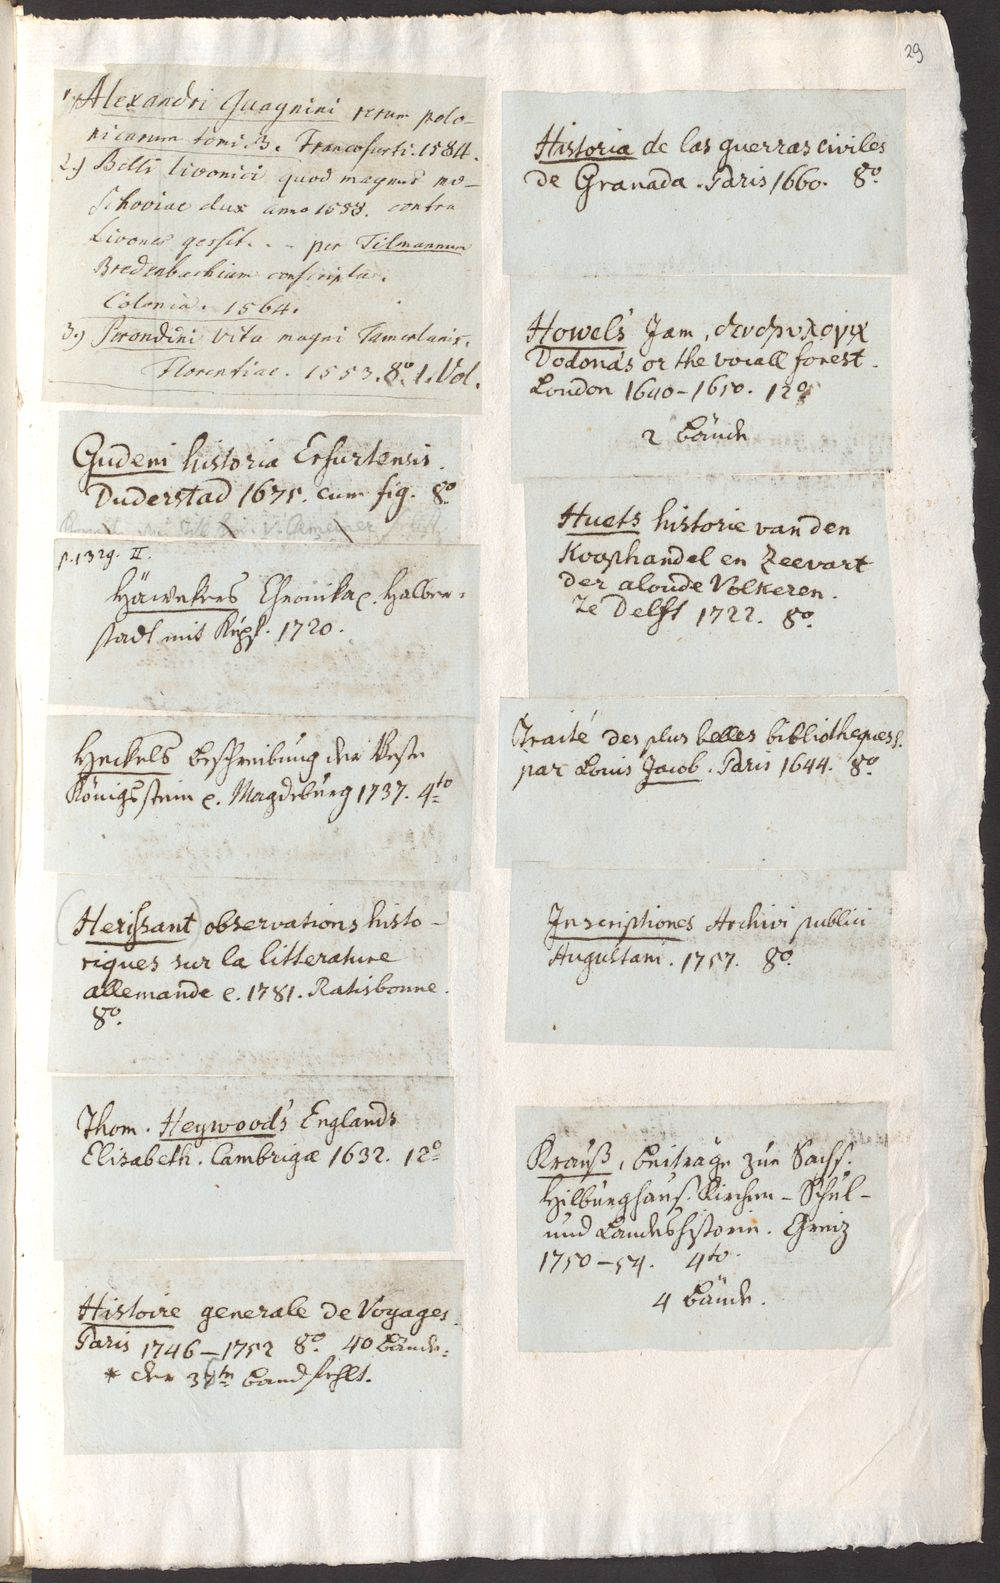 29
1.) Alexandri Guagnini rerum polo-
nicarum tomi. 3. Francofurti. 1584.
2.) Belli livonici quod magnus mo-
schoviae dux anno 1558. contra
Livones gessit. . - per Tilmannum
Bredenbachium conscripta.
Colonia. 1564.
3.) Perondini vita magni Tamerlanis.
Florentiae. 1553. 8º. 1. Vol.
Gudeni historia Erfurtensis.
Duderstad 1675. cum fig. 8º
p. 1329. II.
Chronik v. Halber-
stadt mit Kupf. 1720.
Heckels Beschreibung der Veste
Königsstein e. Magdeburg 1737. 4to
(Herissant) observations histo-
riques sur la litterature
allemande e. 1781. Ratisbonne.
8º.
Thom. Heywood's Englands
Elisabeth. Cambrigæ 1632. 12º
Histoire generale de Voyages.
Paris 1746-1752 8º. 40 Bände.
* der Band fehlt.
Historia de las guerras civiles
de Granada. Paris 1660. 8º.
Howels' Jam, δενδρολογια
Dodona's or the vocall forest.
London 1640-1650. 12º
2 Bände
Huets historie van den
Koophandel en Zeevart
der aloude Volkeren.
Te Delft 1722. 8º.
Traité des plus belles bibliotheques.
par Louis Jacob. Paris 1644. 8º
Inscriptiones Archivi publici
Augustani. 1757. 8º.
Krauß, Beiträge zur Sachs.
Hilburghaus. Kirchen- Schul-
und Landeshistorie. Greiz
1750-54. 4to.
4 Bände.